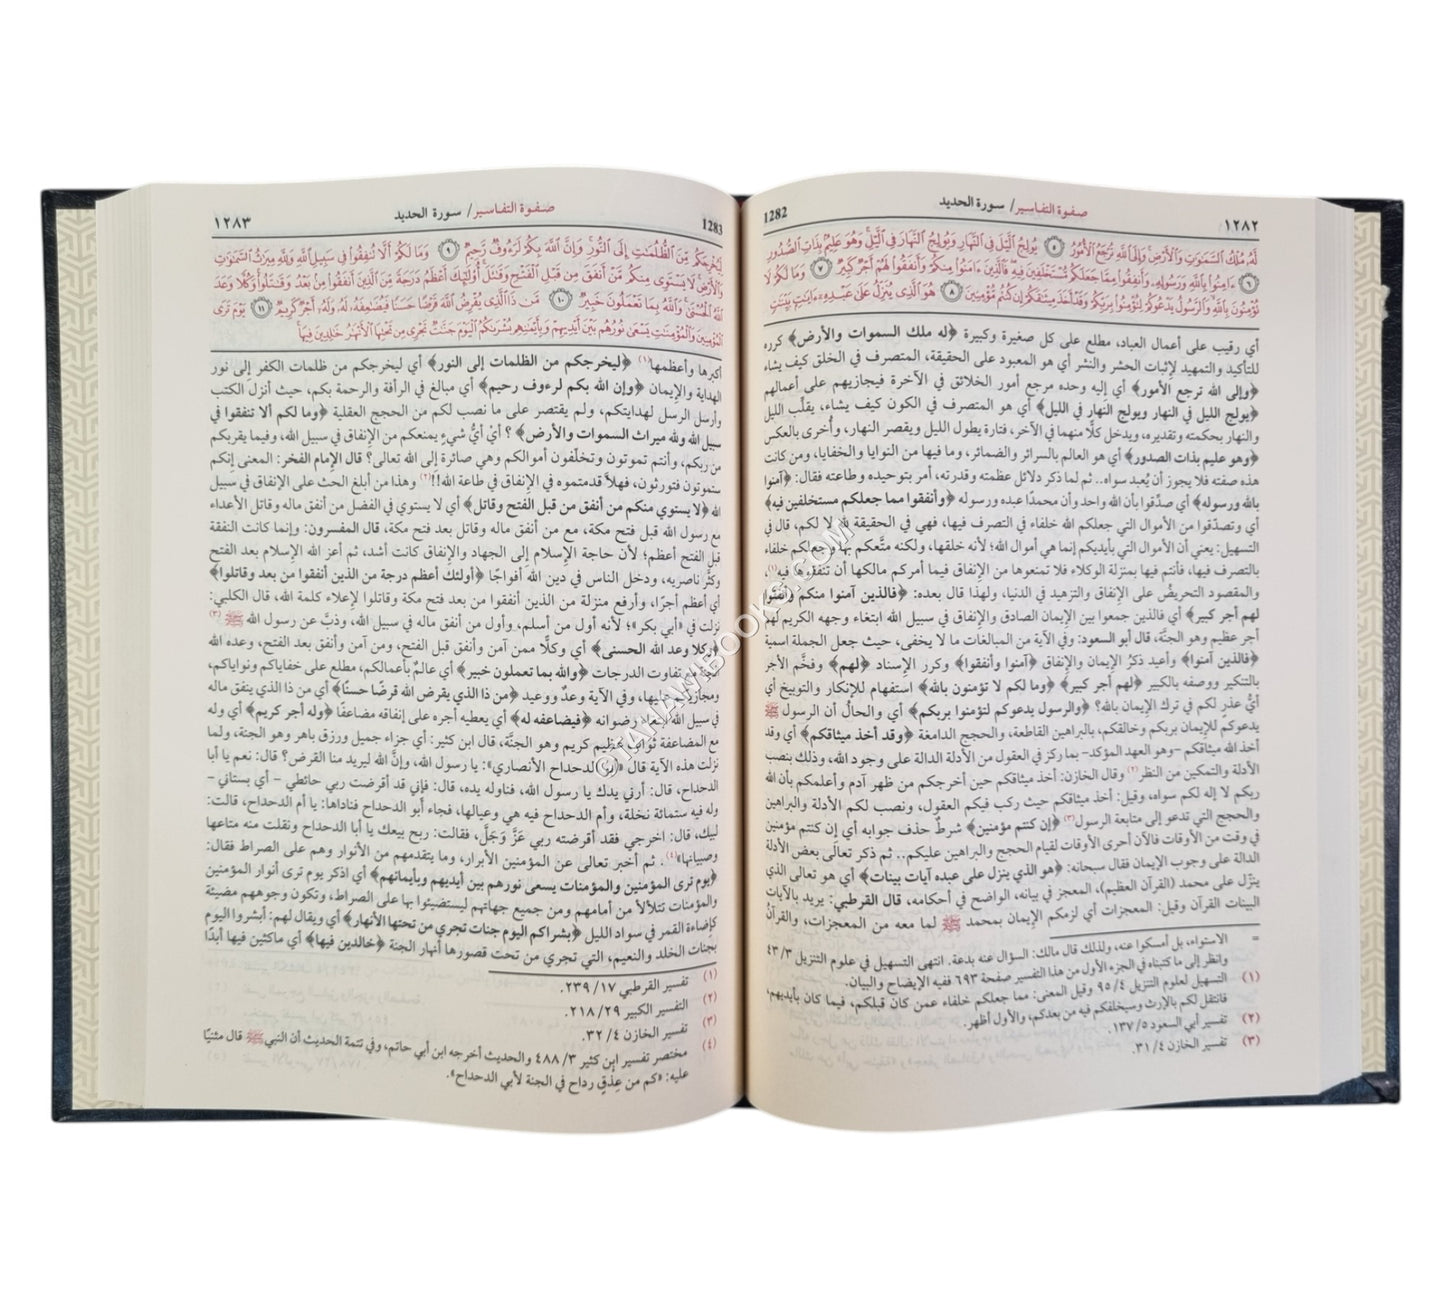 ١٢٨٢
صفوة التفاسير/ سورة الحديد
1282
لَهُ مُلْكُ السَّمَوَتِ وَالْأَرْضِ وَإِلَى اللَّهِ تُرْجَعُ الْأُمُورُ ٥ يُولِجُ الَّيْلَ فِي النَّهَارِ وَيُولِجُ النَّهَارَ فِي الَّيْلِ وَهُوَ عَلِيمٌ بِذَاتِ الصُّدُورِ
٦ ءَامِنُوا بِاللَّهِ وَرَسُولِهِ وَأَنفِقُوا مِمَّا جَعَلَكُم مُّسْتَخْلَفِينَ فِيهِ فَالَّذِينَ ءَامَنُوا مِنكُمْ وَأَنفَقُوا لَهُمْ أَجْرٌ كَبِيرٌ ٧ وَمَا لَكُمْ لَا
تُؤْمِنُونَ بِاللَّهِ وَالرَّسُولُ يَدْعُوكُمْ لِتُؤْمِنُوا بِرَبِّكُمْ وَقَدْ أَخَذَ مِيثَقَكُمْ إِن كُنتُم مُّؤْمِنِينَ ٨ هُوَ الَّذِي يُنَزِّلُ عَلَى عَبْدِهِ ءَايَتٍ بَيِّنَتٍ
أي رقيب على أعمال العباد، مطلع على كل صغيرة وكبيرة ﴿له ملك السموات والأرض﴾ كرره
للتأكيد والتمهيد لإثبات الحشر والنشر أي هو المعبود على الحقيقة، المتصرف في الخلق كيف يشاء
﴿وإلى الله ترجع الأمور﴾ أي إليه وحده مرجع أمور الخلائق في الآخرة فيجازيهم على أعمالهم
﴿يولج الليل في النهار ويولج النهار في الليل﴾ أي هو المتصرف في الكون كيف يشاء، يقلِّب الليل
والنهار بحكمته وتقديره، ويدخل كلًّا منهما في الآخر، فتارة يطول الليل ويقصر النهار، وأُخرى بالعكس
﴿وهو عليم بذات الصدور﴾ أي هو العالم بالسرائر والضمائر، وما فيها من النوايا والخفايا، ومن كانت
هذه صفته فلا يجوز أن يُعبد سواه.. ثم لما ذكر دلائل عظمته وقدرته، أمر بتوحيده وطاعته فقال: ﴿آمنوا
بالله ورسوله﴾ أي صدِّقوا بأن الله واحد وأن محمدًا عبده ورسوله ﴿وأنفقوا مما جعلكم مستخلفين فيه﴾
أي وتصدَّقوا من الأموال التي جعلكم الله خلفاء في التصرف فيها، فهي في الحقيقة لله لا لكم، قال في
التسهيل: يعني أن الأموال التي بأيديكم إنما هي أموال الله؛ لأنه خلقها، ولكنه متَّعكم بها وجعلكم خلفاء
بالتصرف فيها، فأنتم فيها بمنزلة الوكلاء فلا تمنعوها من الإنفاق فيما أمركم مالكها أن تنفقوها فيه(١)،
والمقصود التحريضُ على الإنفاق والتزهيد في الدنيا، ولهذا قال بعده: ﴿فالذين آمنوا منكم وأنفقوا
لهم أجر كبير﴾ أي فالذين جمعوا بين الإيمان الصادق والإنفاق في سبيل الله ابتغاء وجهه الكريم لهم
أجر عظيم وهو الجنَّة، قال أبو السعود: وفي الآية من المبالغات ما لا يخفى، حيث جعل الجملة اسمية
﴿فالذين آمنوا﴾ وأعيد ذكرُ الإيمان والإنفاق ﴿آمنوا وأنفقوا﴾ وكرر الإسناد ﴿لهم﴾ وفخَّم الأجر
بالتنكير ووصفه بالكبير ﴿لهم أجر كبير﴾ ﴿وما لكم لا تؤمنون بالله﴾ استفهام للإنكار والتوبيخ أي
أيُّ عذرٍ لكم في ترك الإيمان بالله؟ ﴿والرسول يدعوكم لتؤمنوا بربكم﴾ أي والحالُ أن الرسول ﷺ
يدعوكم للإيمان بربكم وخالقكم، بالبراهين القاطعة، والحجج الدامغة ﴿وقد أخذ ميثاقكم﴾ أي وقد
أخذ الله ميثاقكم -وهو العهد المؤكد- بما ركز في العقول من الأدلة الدالة على وجود الله، وذلك بنصب
الأدلة والتمكين من النظر(٢) وقال الخازن: أخذ ميثاقكم حين أخرجكم من ظهر آدم وأعلمكم بأن الله
ربكم لا إله لكم سواه، وقيل: أخذ ميثاقكم حيث ركب فيكم العقول، ونصب لكم الأدلة والبراهين
والحجج التي تدعو إلى متابعة الرسول(٣) ﴿إن كنتم مؤمنين﴾ شرطٌ حذف جوابه أي إن كنتم مؤمنين
في وقت من الأوقات فالآن أحرى الأوقات لقيام الحجج والبراهين عليكم.. ثم ذكر تعالى بعض الأدلة
الدالة على وجوب الإيمان فقال سبحانه: ﴿هو الذي ينزل على عبده آيات بينات﴾ أي هو تعالى الذي
ينزِّل على محمد (القرآن العظيم)، المعجز في بيانه، الواضح في أحكامه، قال القرطبي: يريد بالآيات
البينات القرآن وقيل: المعجزات أي لزمكم الإيمان بمحمد ﷺ لما معه من المعجزات، والقرآنُ
= الاستواء، بل أمسكوا عنه، ولذلك قال مالك: السؤال عنه بدعة. انتهى التسهيل في علوم التنزيل ٣/ ٤٣
وانظر إلى ما كتبناه في الجزء الأول من هذا التفسير صفحة ٦٩٣ ففيه الإيضاح والبيان.
(١) التسهيل لعلوم التنزيل ٤/ ٩٥ وقيل المعنى: مما جعلكم خلفاء عمن كان قبلكم، فيما كان بأيديهم،
فانتقل لكم بالإرث وسيخلفكم فيه من بعدكم، والأول أظهر.
(٢) تفسير أبي السعود ٥/ ١٣٧.
(٣) تفسير الخازن ٤/ ٣١.
1283
صفوة التفاسير/ سورة الحديد
١٢٨٣
لِيُخْرِجَكُم مِّنَ الظُّلُمَتِ إِلَى النُّورِ وَإِنَّ اللَّهَ بِكُمْ لَرَءُوفٌ رَّحِيمٌ ٩ وَمَا لَكُمْ أَلَّا تُنفِقُوا فِي سَبِيلِ اللَّهِ وَلِلَّهِ مِيرَثُ السَّمَوَتِ
وَالْأَرْضِ لَا يَسْتَوِي مِنكُم مَّنْ أَنفَقَ مِن قَبْلِ الْفَتْحِ وَقَتَلَ أُوْلَئِكَ أَعْظَمُ دَرَجَةً مِّنَ الَّذِينَ أَنفَقُوا مِنْ بَعْدُ وَقَتَلُوا وَكُلًّا وَعَدَ
اللَّهُ الْحُسْنَى وَاللَّهُ بِمَا تَعْمَلُونَ خَبِيرٌ ١٠ مَّن ذَا الَّذِي يُقْرِضُ اللَّهَ قَرْضًا حَسَنًا فَيُضَعِفَهُ لَهُ وَلَهُ أَجْرٌ كَرِيمٌ ١١ يَوْمَ تَرَى
الْمُؤْمِنِينَ وَالْمُؤْمِنَتِ يَسْعَى نُورُهُم بَيْنَ أَيْدِيهِمْ وَبِأَيْمَنِهِم بُشْرَىكُمُ الْيَوْمَ جَنَّتٌ تَجْرِي مِن تَحْتِهَا الْأَنْهَرُ خَلِدِينَ فِيهَا
أكبرها وأعظمها(١) ﴿ليخرجكم من الظلمات إلى النور﴾ أي ليخرجكم من ظلمات الكفر إلى نور
الهداية والإيمان ﴿وإن الله بكم لرءوف رحيم﴾ أي مبالغ في الرأفة والرحمة بكم، حيث أنزل الكتب
وأرسل الرسل لهدايتكم، ولم يقتصر على ما نصب لكم من الحجج العقلية ﴿وما لكم ألا تنفقوا في
سبيل الله ولله ميراث السموات والأرض﴾ ؟ أيْ أيُّ شيءٍ يمنعكم من الإنفاق في سبيل الله، وفيما يقربكم
من ربكم، وأنتم تموتون وتخلّفون أموالكم وهي صائرة إلى الله تعالى؟ قال الإمام الفخر: المعنى إنكم
ستموتون فتورثون، فهلاَّ قدمتموه في الإنفاق في طاعة الله!!(٢) وهذا من أبلغ الحث على الإنفاق في سبيل
الله ﴿لا يستوي منكم من أنفق من قبل الفتح وقاتل﴾ أي لا يستوي في الفضل من أنفق ماله وقاتل الأعداء
مع رسول الله قبل فتح مكة، مع من أنفق ماله وقاتل بعد فتح مكة، قال المفسرون: وإنما كانت النفقة
قبل الفتح أعظم؛ لأن حاجة الإسلام إلى الجهاد والإنفاق كانت أشد، ثم أعز الله الإسلام بعد الفتح
وكثَّر ناصريه، ودخل الناس في دين الله أفواجًا ﴿أولئك أعظم درجة من الذين أنفقوا من بعد وقاتلوا﴾
أي أعظم أجرًا، وأرفع منزلة من الذين أنفقوا من بعد فتح مكة وقاتلوا لإعلاء كلمة الله، قال الكلبي:
نزلت في «أبي بكر»؛ لأنه أول من أسلم، وأول من أنفق ماله في سبيل الله، وذبَّ عن رسول الله ﷺ(٣)
﴿وكلا وعد الله الحسنى﴾ أي وكلًّا ممن آمن وأنفق قبل الفتح، ومن آمن وأنفق بعد الفتح، وعده الله
تفاوت الدرجات ﴿والله بما تعملون خبير﴾ أي عالمٌ بأعمالكم، مطلع على خفاياكم ونواياكم،
ومجازيكم عليها، وفي الآية وعدٌ ووعيد ﴿من ذا الذي يقرض الله قرضًا حسنًا﴾ أي من ذا الذي ينفق ماله
في سبيل الله ابتغاء رضوانه ﴿فيضاعفه له﴾ أي يعطيه أجره على إنفاقه مضاعفًا ﴿وله أجر كريم﴾ أي وله
مع المضاعفة ثواب عظيم كريم وهو الجنَّة، قال ابن كثير: أي جزاء جميل ورزق باهر وهو الجنة، ولما
نزلت هذه الآية قال «أبو الدحداح الأنصاري»: يا رسول الله، وإنَّ الله ليريد منا القرض؟ قال: نعم يا أبا
الدحداح، قال: أرني يدك يا رسول الله، فناوله يده، قال: فإني قد أقرضت ربي حائطي – أي بستاني –
وله فيه ستمائة نخلة، وأم الدحداح فيه هي وعيالها، فجاء أبو الدحداح فناداها: يا أم الدحداح، قالت:
لبيك، قال: اخرجي فقد أقرضته ربي عَزَّ وَجَلَّ، فقالت: ربح بيعك يا أبا الدحداح ونقلت منه متاعها
وصبيانها»(٤). ثم أخبر تعالى عن المؤمنين الأبرار، وما يتقدمهم من الأنوار وهم على الصراط فقال:
﴿يوم ترى المؤمنين والمؤمنات يسعى نورهم بين أيديهم وبأيمانهم﴾ أي اذكر يوم ترى أنوار المؤمنين
والمؤمنات تتلألأ من أمامهم ومن جميع جهاتهم ليستضيئوا بها على الصراط، وتكون وجوههم مضيئة
كإضاءة القمر في سواد الليل ﴿بشراكم اليوم جنات تجري من تحتها الأنهار﴾ أي ويقال لهم: أبشروا اليوم
بجنات الخلد والنعيم، التي تجري من تحت قصورها أنهار الجنة ﴿خالدين فيها﴾ أي ماكثين فيها أبدًا
(١) تفسير القرطبي ١٧/ ٢٣٩.
(٢) التفسير الكبير ٢٩/ ٢١٨.
(٣) تفسير الخازن ٤/ ٣٢.
(٤) مختصر تفسير ابن كثير ٣/ ٤٨٨ والحديث أخرجه ابن أبي حاتم، وفي تتمة الحديث أن النبي ﷺ قال مثنيًا
عليه: «كم من عِذْقٍ رداح في الجنة لأبي الدحداح».
© TAHAWIBOOKS.COM